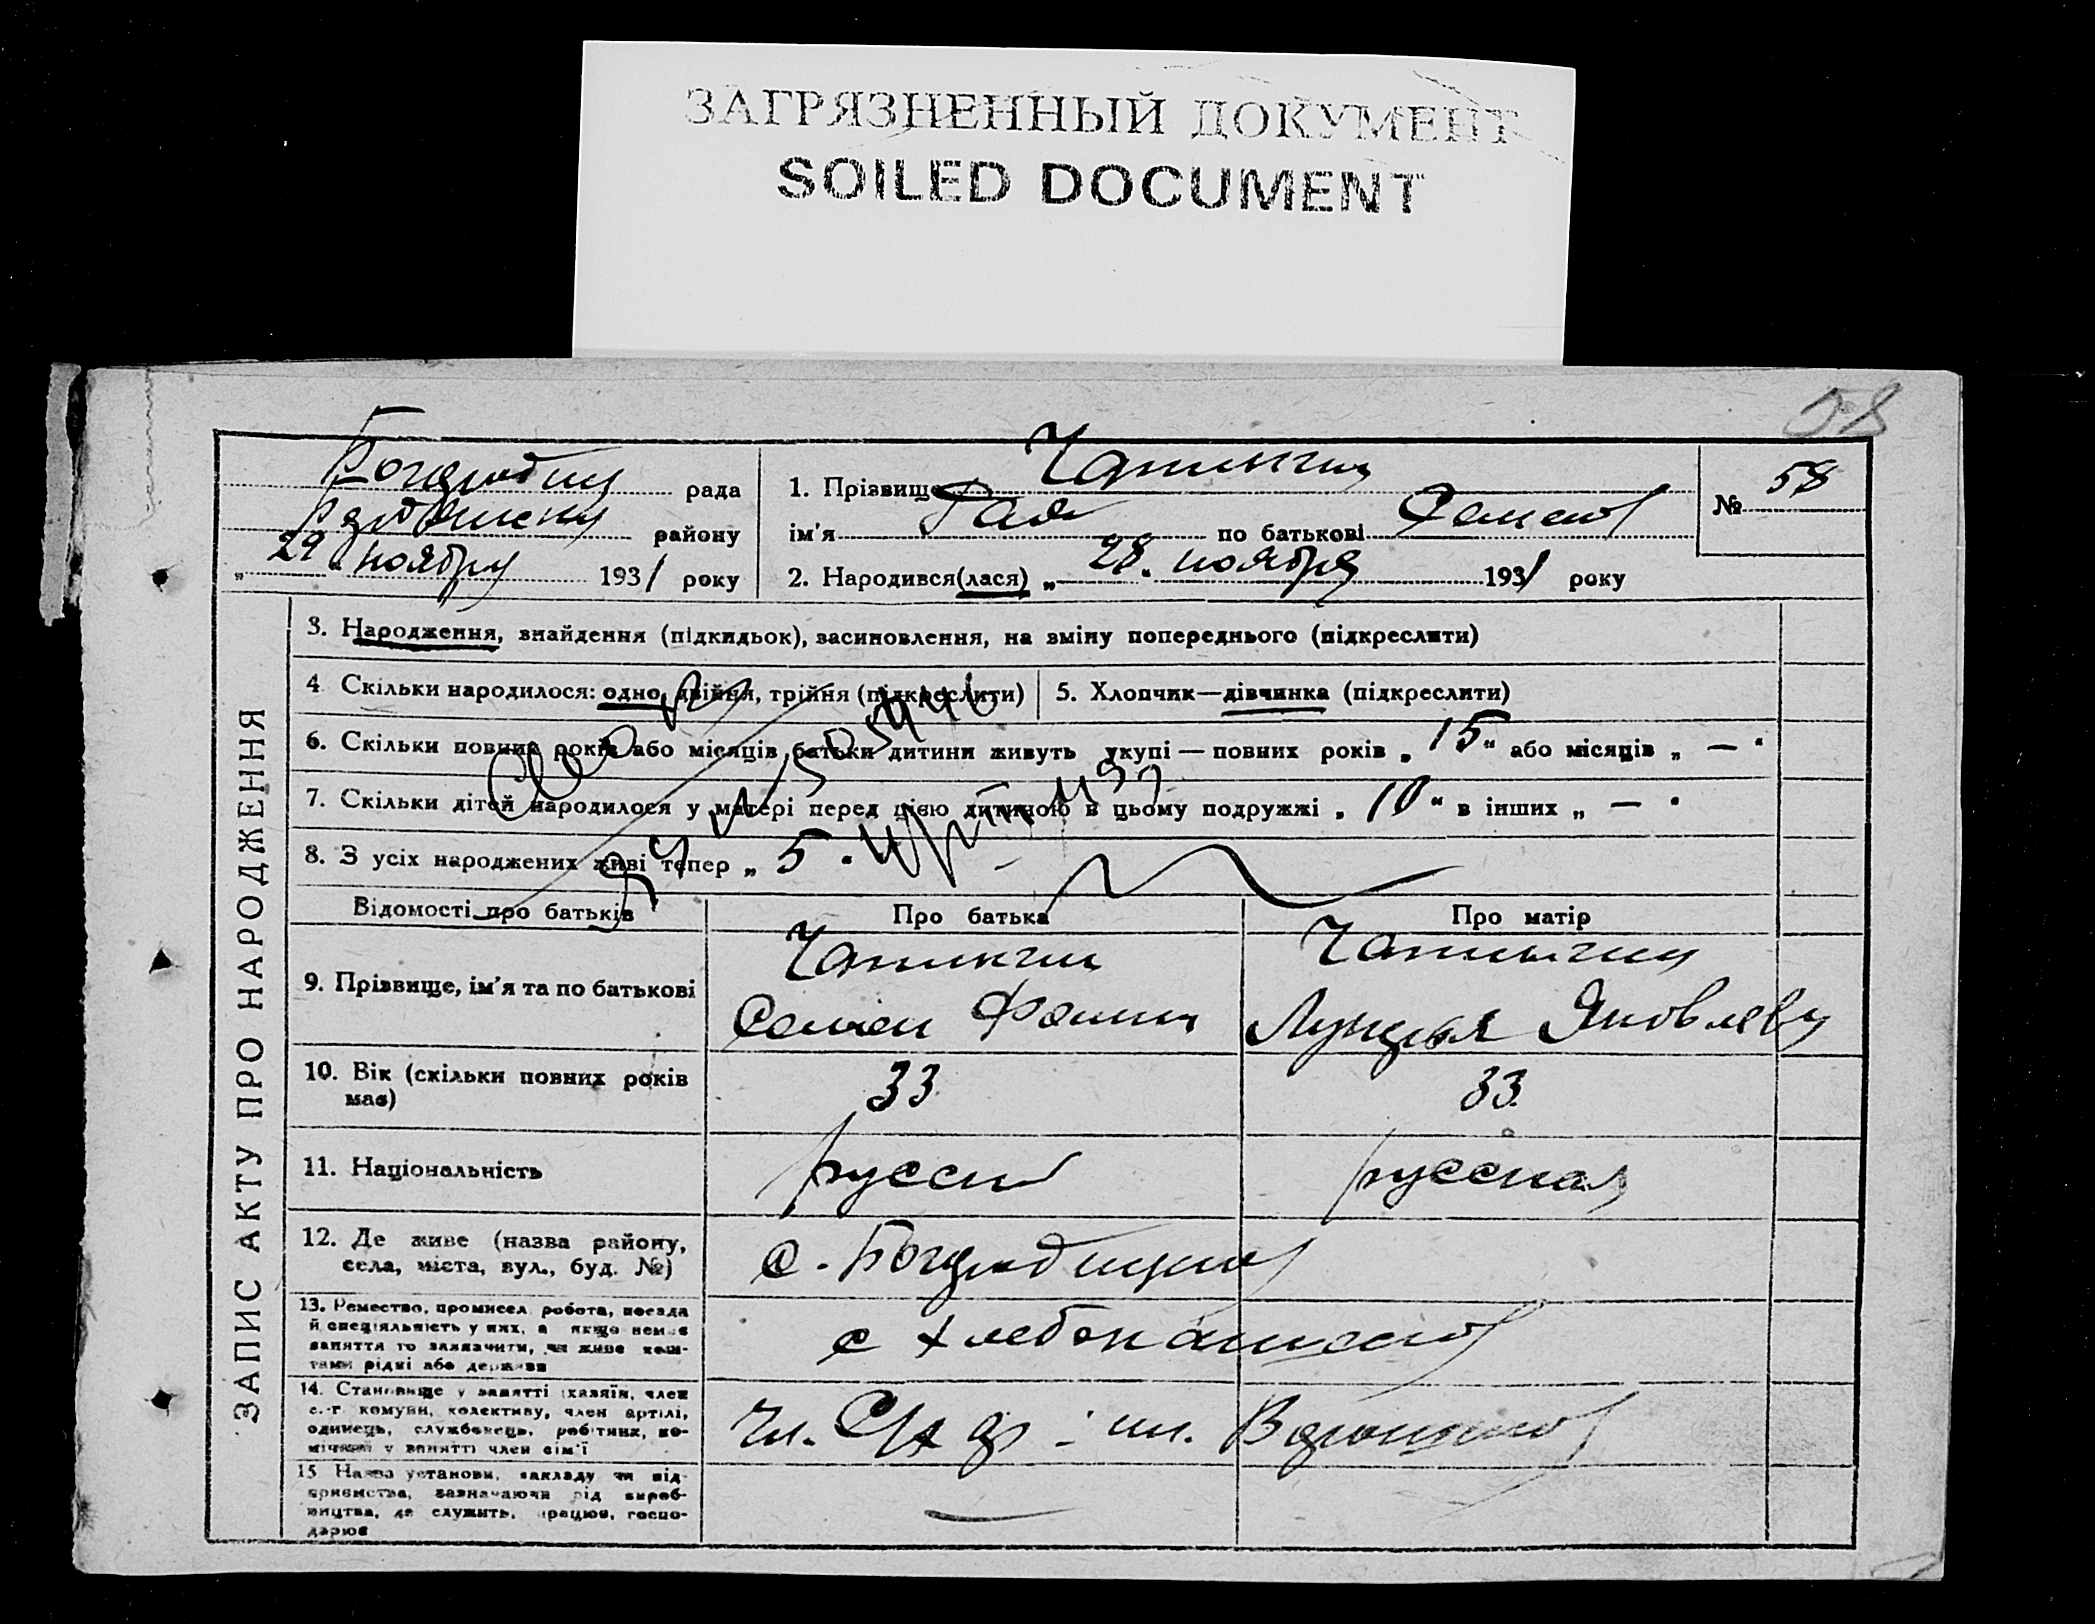 ЗАГРЯЗНЕННЫЙ ДОКУМЕНТ
SOILED DOCUMENT
58
рада
району
29 ноября 1931 року
1. Прізвище
ім'я Рая по батькові Семенов
2. Народився(лася) „28" ноября 1931 року
№ 58
ЗАПИС АКТУ ПРО НАРОДЖЕННЯ
3. Народження, знайдення (підкидьок), засиновлення, на зміну попереднього (підкреслити)
4. Скільки народилося: одно, двійня, трійня (підкреслити)
5. Хлопчик—дівчинка (підкреслити)
6. Скільки повних років або місяців батьки дитини живуть укупі — повних років „ 15 " або місяців „ — "
7. Скільки дітей народилося у матері перед цією дитиною в цьому подружжі „ 10 " в інших „ — "
8. З усіх народжених живі тепер „ 5 "
Відомості про батьків
Про батька
Про матір
9. Прізвище, ім'я та по батькові
Семен Фомич
Лукерья Яковлевн
10. Вік (скільки повних років
має)
33
33
11. Національність
русский
русская
12. Де живе (назва району,
села, міста, вул., буд. №)
с.
13. Ремество, промисел, робота, посада
й спеціяльність у них, а якщо немає
заняття то зазначити, чи живе кош-
тами рідні або держави
с хлебопашеств
14. Становище у занятті (хазяїн, член
с.-г. комуни, колективу, член артілі,
одинець, службовець, робітник, по-
мічний у занятті член сім'ї
чл. С/Х ар. им. Ворошилов
15. Назва установи, закладу чи під-
приємства, зазначаючи рід вироб-
ництва, де служить, працює, госпо-
дарює
—